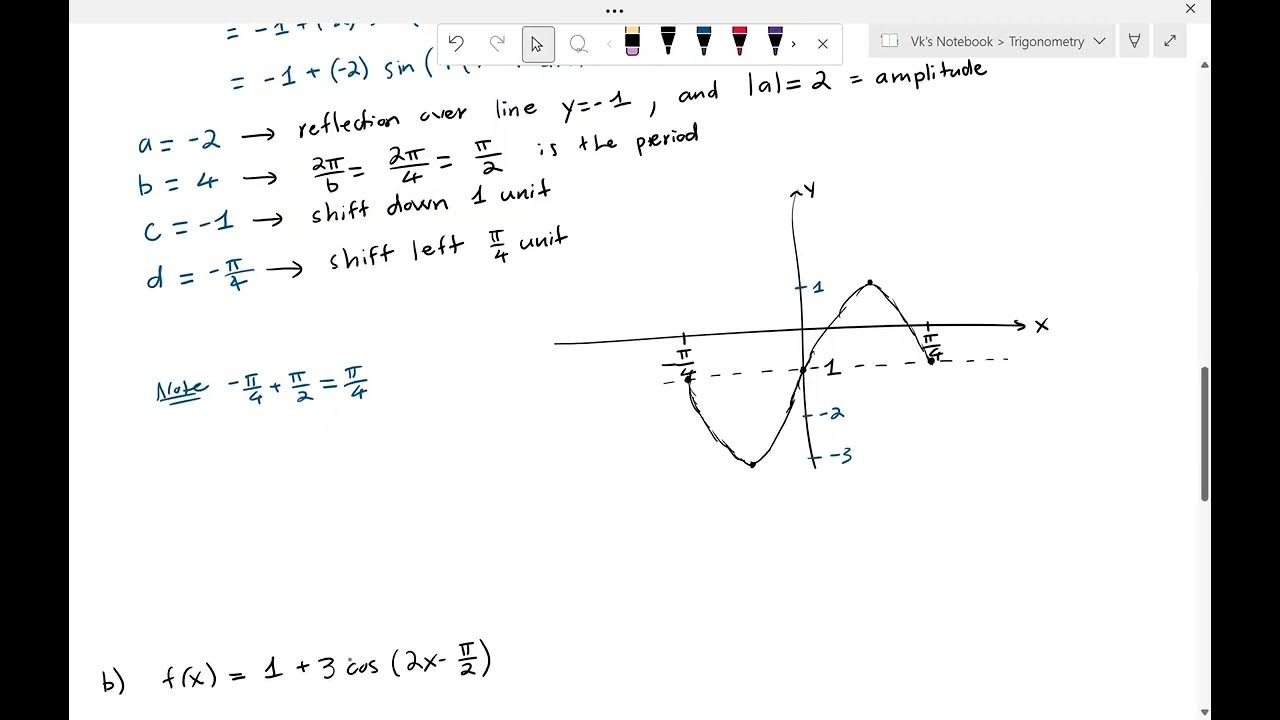 Vk's Notebook > Trigonometry
= -1 +
= -1 + (-2) sin (
a = -2 → reflection over line y=-1, and |a| = 2 = amplitude
b = 4 → 2π/b = 2π/4 = π/2 is the period
c = -1 → shift down 1 unit
d = -π/4 → shift left π/4 unit
y
1
x
-π/4
π/4
-1
-2
-3
Note -π/4 + π/2 = π/4
b) f(x) = 1 + 3 cos (2x - π/2)